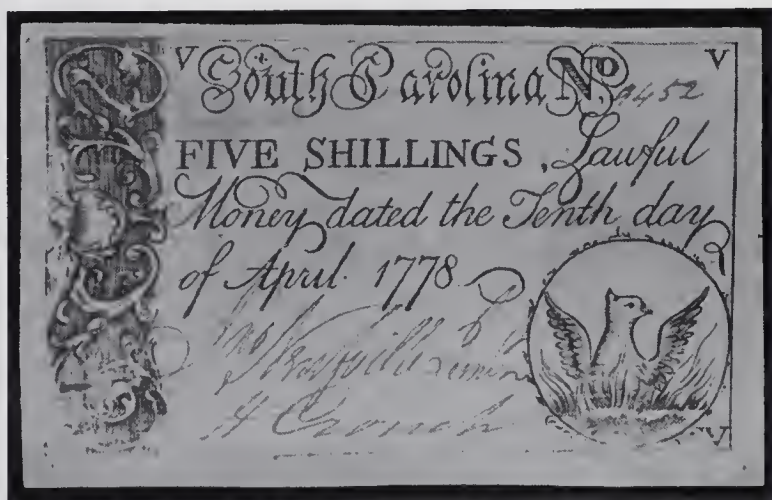 V South Carolina No. 9452 V
FIVE SHILLINGS, Lawful
Money dated the Tenth day
of April. 1778
H Crouch
V